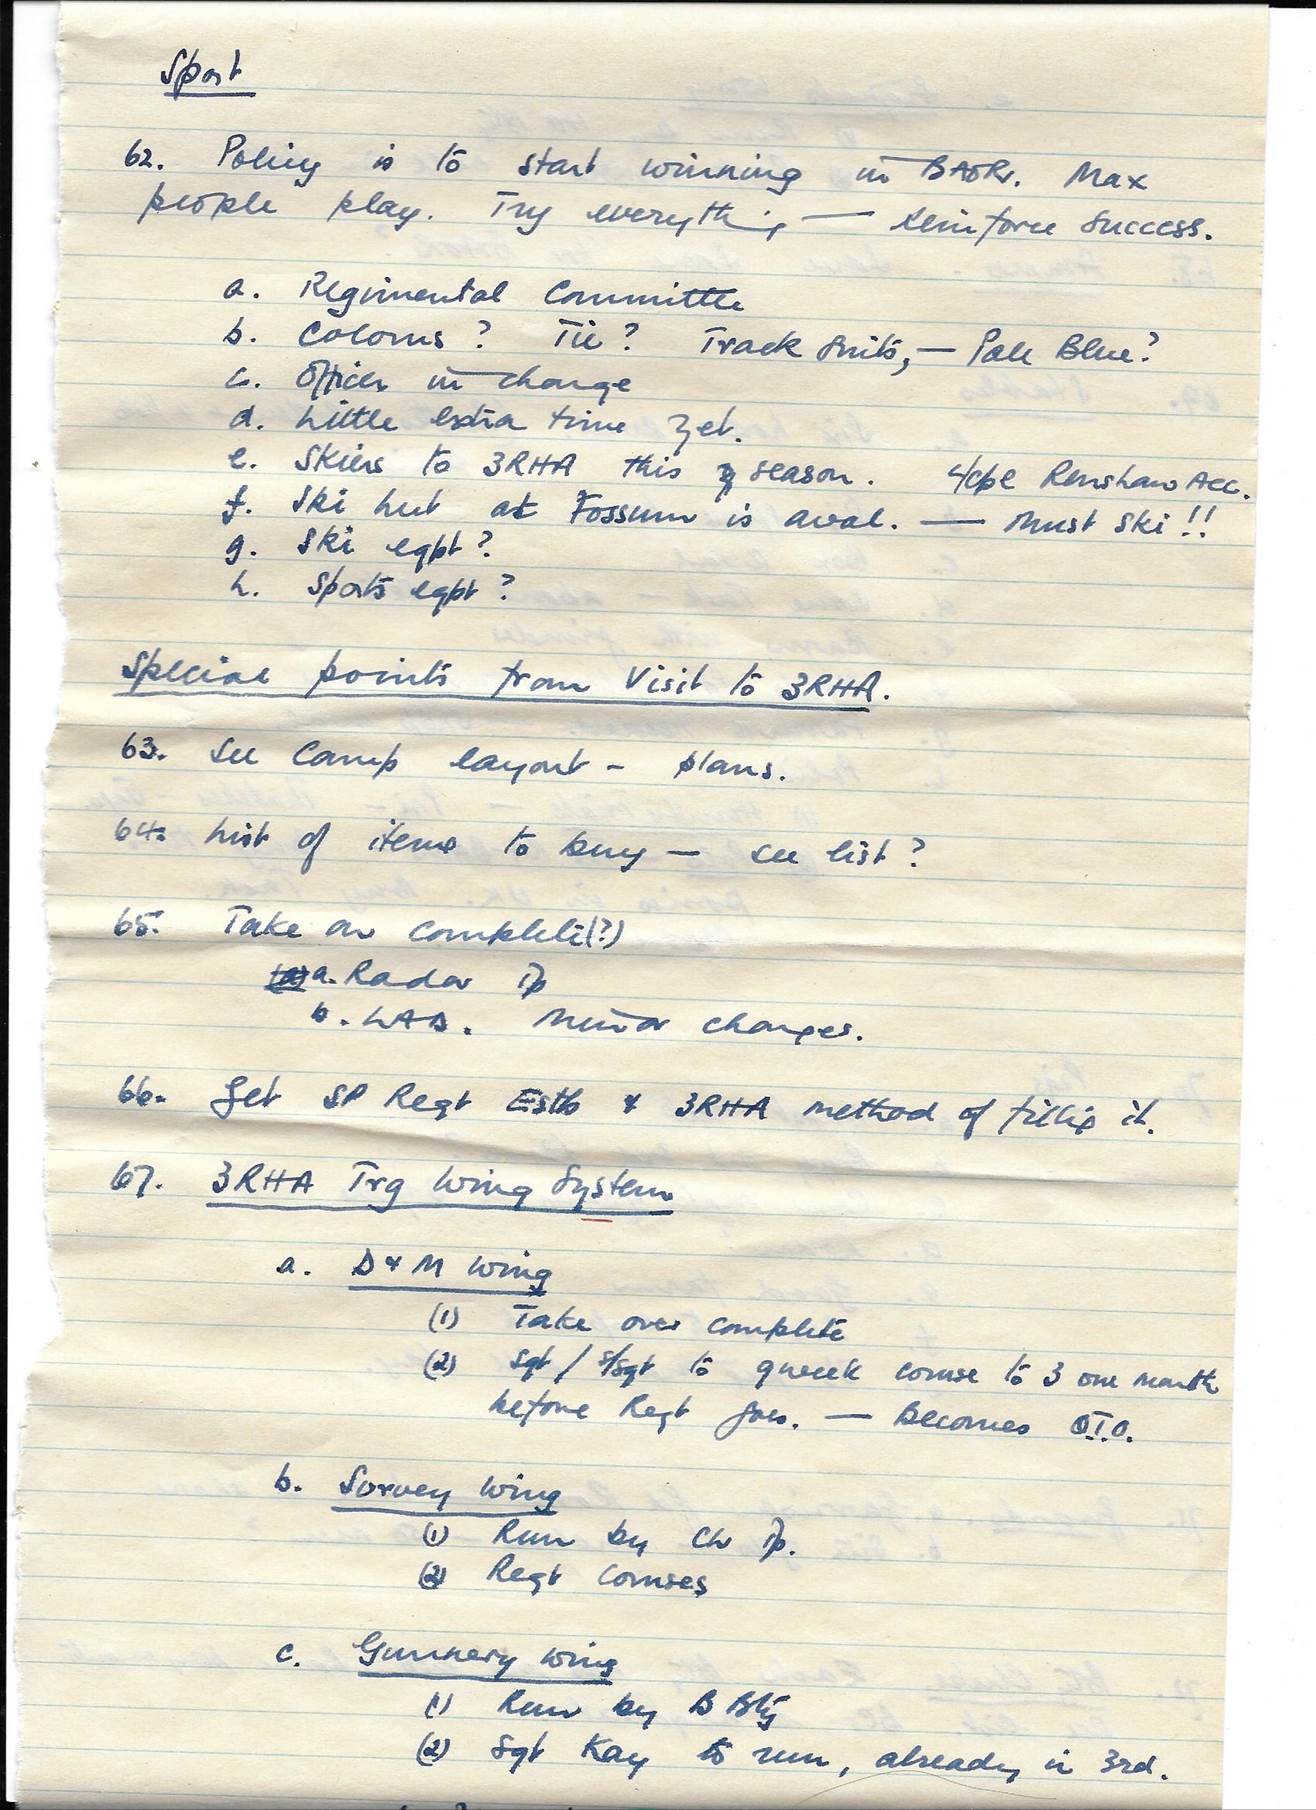 Sport
62. Policy is to start winning in BAOR. Max
people play. Try everything — reinforce success.
a. Regimental Committee
b. Colours? Tie? Track Suits, — Pale Blue?
c. Officer in charge
d. Little extra time yet.
e. Skiers to 3RHA this season. L/cpl Renshaw Acc.
f. Ski hut at Fossum is aval. — Must Ski!!
g. Ski eqpt?
h. Sports eqpt?
Special points from Visit to 3RHA.
63. See Camp layout - plans.
64. List of items to buy — see list?
65. Take on complete(?)
a. Radar Tp
b. LAD. Minor changes.
66. Get SP Regt Estb & 3RHA method of filling it.
67. 3RHA Trg Wing System
a. D & M Wing
(1) Take over complete
(2) Sgt / S/Sgt to course to 3 one month
before Regt goes. — Becomes
b. Survey Wing
(1) Run by Tp.
(2) Regt Courses
c. Gunnery Wing
(1) Run by B Bty
(2) Sgt Kay to run, already in 3rd.